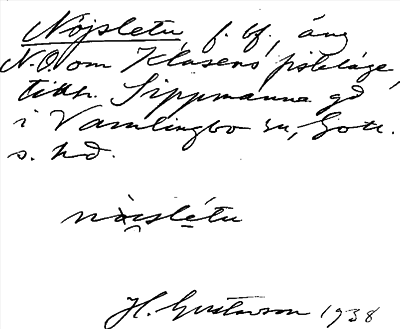 Nojsletu, f. bf, äng
N.O. om Klasens fisteläge,
tillh. Sippmanna gd
i Vamlingbo sn, Gotl.
s. hd.
nòisletu
H. Gustavson 1938